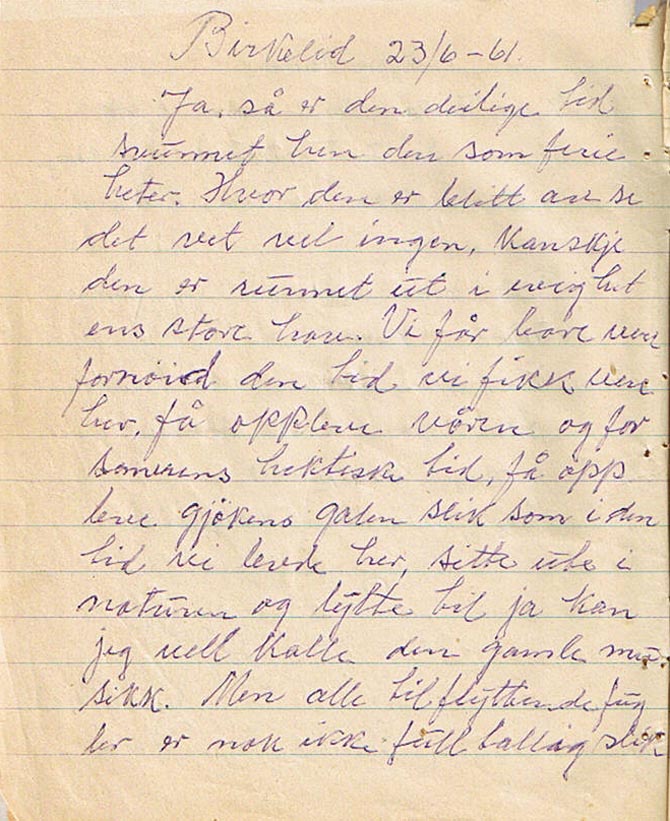 Birkelid 23/6-61.
Ja, så er den deilige tid
svunnet hen den som ferie
heter. Hvor den er blitt av se
det vet vel ingen, kanskje
den er runnet ut i evighet
ens store hav. Vi får bare være
fornøid den tid vi fikk være
her, få oppleve våren og for
somerens hektiske tid, få opp
leve gjökens galen slik som i den
tid vi levde her, sitte ute i
naturen og lytte til ja kan
jeg vell kalle den gamle mu-
sikk. Men alle tilflyttende fug
ler er nok ikke fulltallig slik